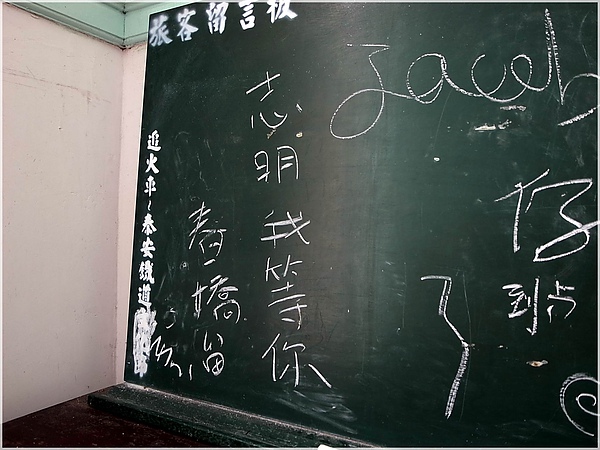 旅客留言板
Jacob
仔
到站
了
志明 我等你
春嬌留
追火車~泰安鐵道